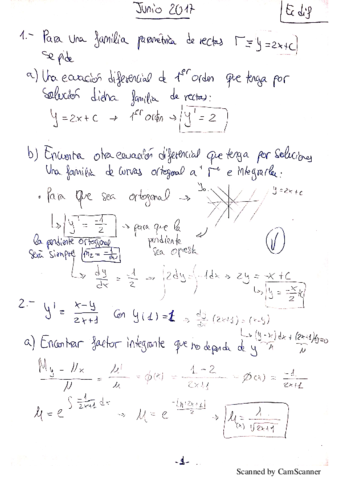 Junio 2017
Ec dif
1.- Para una familia paramétrica de rectas Γ ≡ y = 2x+C
se pide
a) Una ecuación diferencial de 1er orden que tenga por
solución dicha familia de rectas:
y = 2x + C → 1er orden → y' = 2
b) Encuentra otra ecuación diferencial que tenga por soluciones
una familia de curvas ortogonal a Γ e integrarla:
• Para que sea ortogonal → y = 2x+C
y' = -1/2 → para que la
pendiente
sea opuesta
la pendiente ortogonal
será siempre
dy/dx = -1/2 → 2dy = -1dx → 2y = -x + C
y = -x/2
2.- y' = (x-y)/(2x+1) con y(1)=1 → dy/dx (2x+1) = (x-y)
(y-x)dx + (2x+1)dy=0
a) Encontrar factor integrante que no dependa de y
= φ(x) = (1-2)/(2x+1) → φ(x) = -1/(2x+1)
μ = e^∫ -1/(2x+1) dx → μ = e → μ(x) = 1/√(2x+1)
-1-
Scanned by CamScanner